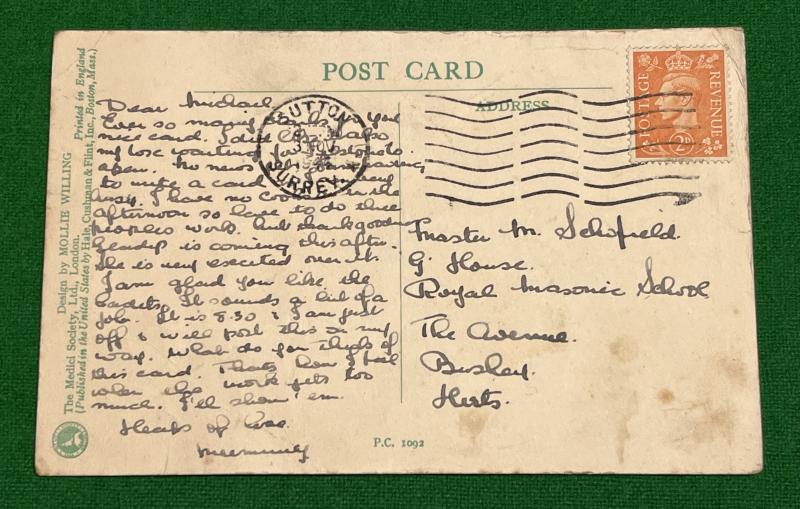 POST CARD
ADDRESS
POSTAGE
REVENUE
SUTTON
NOV
SURREY
Dear Michael
Ever so many thanks for your
nice card.
my love waiting for
open. No news
to write a card
busy. I have no cook in the
afternoon so have to do three
peoples work. but thank goodness
is coming this after.
She is very excited over it.
I am glad you like the
Cadets. It sounds a bit of a
joke. It is 8.30 & I am just
off & will post this on my
way. What do you think of
this card. Thats how I feel
when the work gets too
much. I'll show 'em.
Heaps of love
Mummy
Master M. Schofield.
G. House.
Royal Masonic School
The Avenue.
Bushey.
Herts.
P.C. 1092
Design by MOLLIE WILLING
The Medici Society, Ltd., London.
Printed in England
(Published in the United States by Hale, Cushman & Flint, Inc., Boston, Mass.)